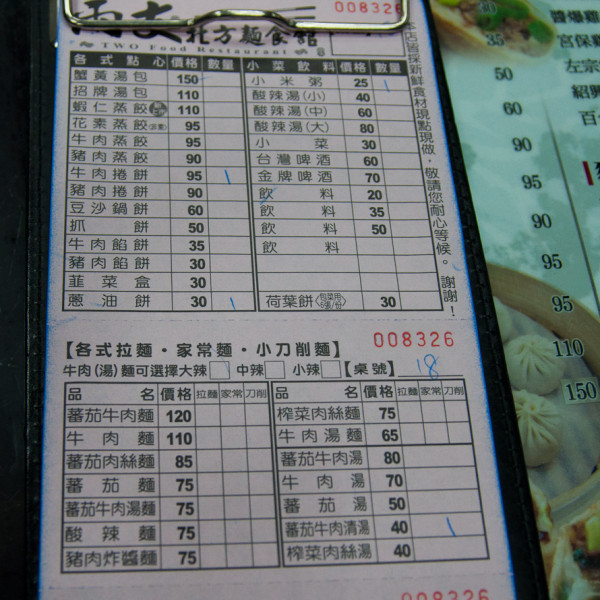 雨支 北方麵食館
TWO Food Restaurant
008326
各式點心 價格 數量 小菜飲料 價格 數量
蟹黃湯包 150 小米粥 25 1
招牌湯包 110 酸辣湯(小) 40
蝦仁蒸餃 110 酸辣湯(中) 60
花素蒸餃 95 酸辣湯(大) 80
牛肉蒸餃 95 小菜 30
豬肉蒸餃 90 台灣啤酒 60
牛肉捲餅 95 1 金牌啤酒 70
豬肉捲餅 90 飲料 20
豆沙鍋餅 60 飲料 35
抓餅 50 飲料 50
牛肉餡餅 35 飲料
豬肉餡餅 30
韮菜盒 30
蔥油餅 30 1 荷葉餅 30
本店皆採新鮮食材現點現做，敬請您耐心等候。謝謝！
008326
【各式拉麵・家常麵・小刀削麵】
牛肉(湯)麵可選擇大辣 中辣 小辣 【桌號】 18
品名 價格 拉麵 家常 刀削 品名 價格 拉麵 家常 刀削
蕃茄牛肉麵 120 榨菜肉絲麵 75
牛肉麵 110 牛肉湯麵 65
蕃茄肉絲麵 85 蕃茄牛肉湯 80
蕃茄麵 75 牛肉湯 70
蕃茄牛肉湯麵 75 蕃茄湯 50
酸辣麵 75 蕃茄牛肉清湯 40 1
豬肉炸醬麵 75 榨菜肉絲湯 40
008326
醬爆雞
宮保雞
左宗
紹興
百
30
35
50
60
90
95
90
95
95
110
150